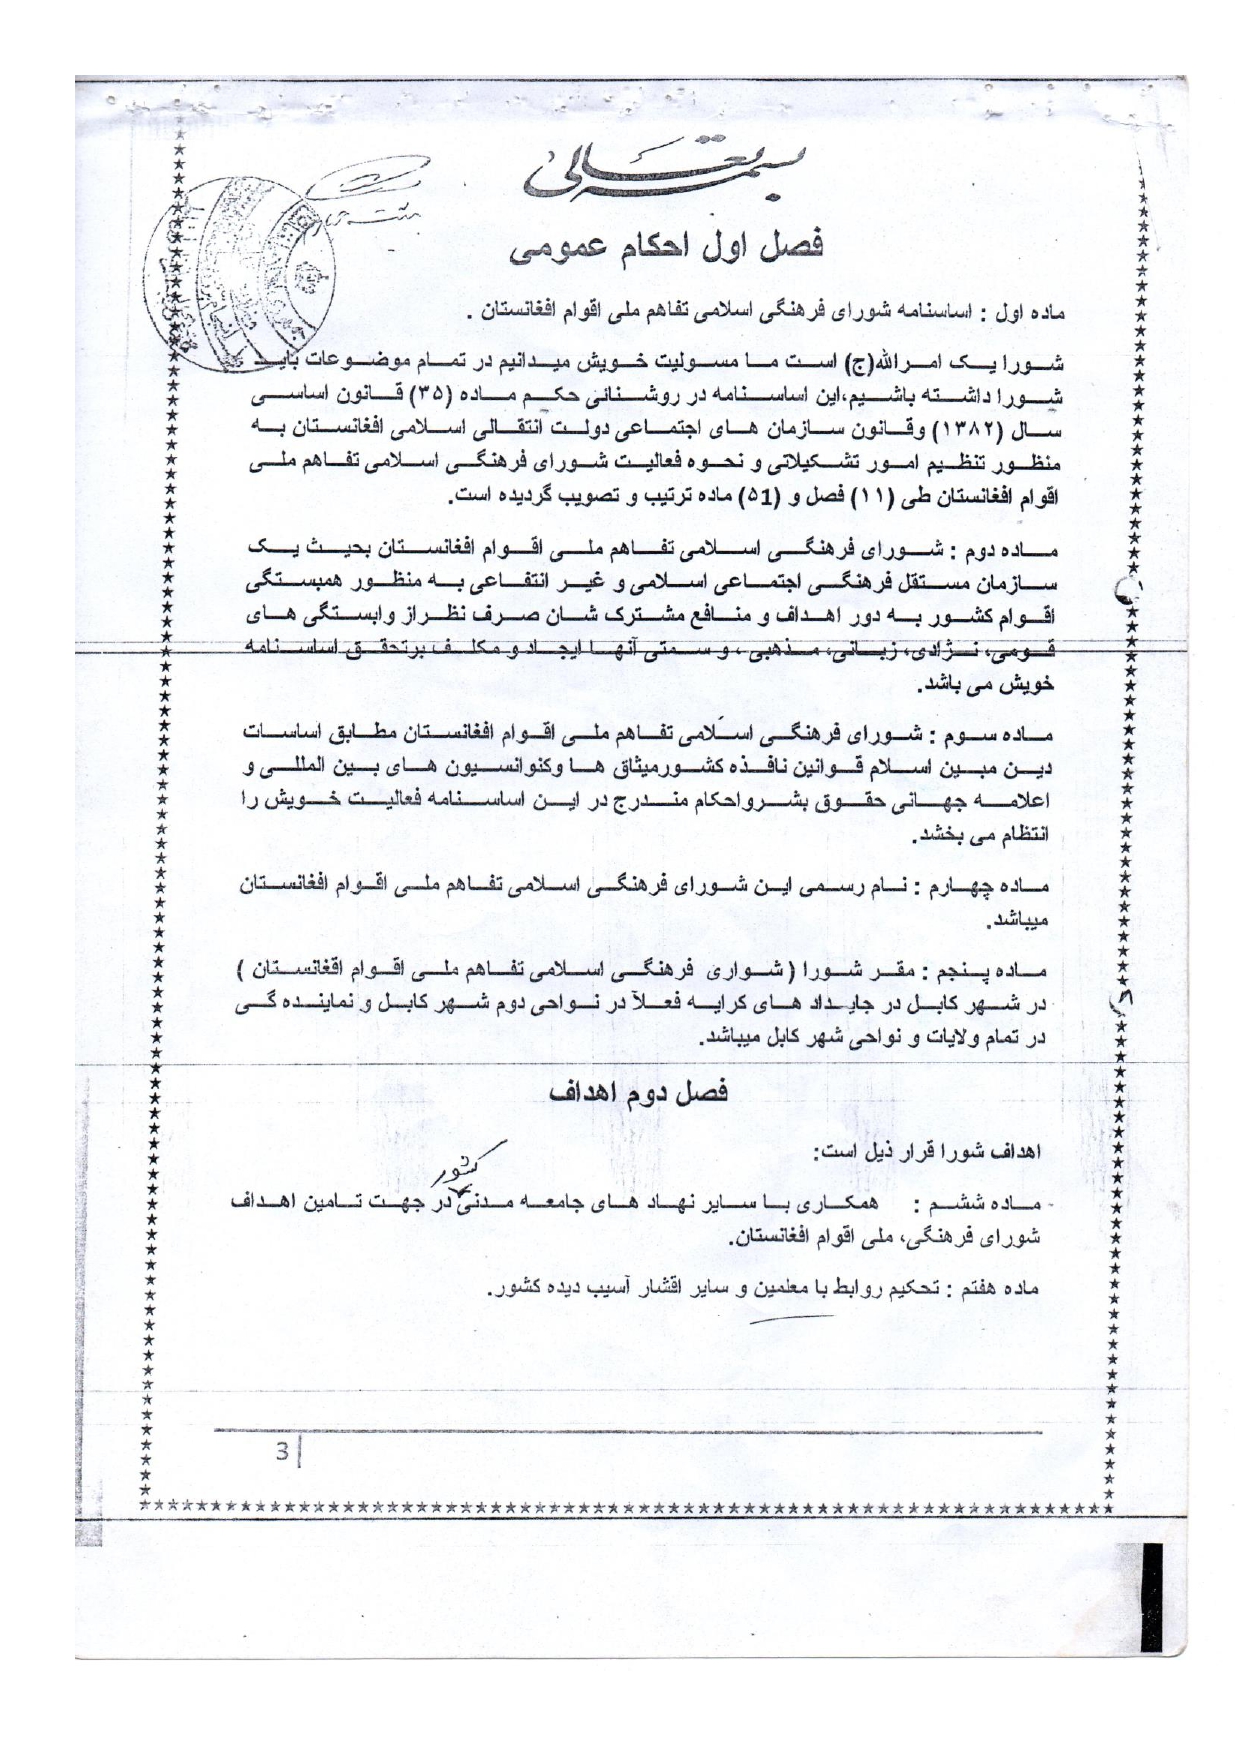 بسمه تعالی
فصل اول احکام عمومی
ماده اول : اساسنامه شورای فرهنگی اسلامی تفاهم ملی اقوام افغانستان .
شورا یک امرالله(ج) است ما مسولیت خویش میدانیم در تمام موضوعات باید
شورا داشته باشیم،این اساسنامه در روشنائی حکم ماده (۳۵) قانون اساسی
سال (۱۳۸۲) وقانون سازمان های اجتماعی دولت انتقالی اسلامی افغانستان به
منظور تنظیم امور تشکیلاتی و نحوه فعالیت شورای فرهنگی اسلامی تفاهم ملی
اقوام افغانستان طی (۱۱) فصل و (۵1) ماده ترتیب و تصویب گردیده است.
ماده دوم : شورای فرهنگی اسلامی تفاهم ملی اقوام افغانستان بحیث یک
سازمان مستقل فرهنگی اجتماعی اسلامی و غیر انتفاعی به منظور همبستگی
اقوام کشور به دور اهداف و منافع مشترک شان صرف نظراز وابستگی های
قومی، نژادی، زبانی، مذهبی ، و سمتی آنها ایجاد و مکلف برتحقق اساسنامه
خویش می باشد.
ماده سوم : شورای فرهنگی اسلامی تفاهم ملی اقوام افغانستان مطابق اساسات
دین مبین اسلام قوانین نافذه کشورمیثاق ها وکنوانسیون های بین المللی و
اعلامه جهانی حقوق بشرواحکام مندرج در این اساسنامه فعالیت خویش را
انتظام می بخشد.
ماده چهارم : نام رسمی این شورای فرهنگی اسلامی تفاهم ملی اقوام افغانستان
میباشد.
ماده پنجم : مقر شورا ( شواری فرهنگی اسلامی تفاهم ملی اقوام افغانستان )
در شهر کابل در جایداد های کرایه فعلاً در نواحی دوم شهر کابل و نماینده گی
در تمام ولایات و نواحی شهر کابل میباشد.
فصل دوم اهداف
اهداف شورا قرار ذیل است:
کشور
ماده ششم : همکاری با سایر نهاد های جامعه مدنی در جهت تامین اهداف
شورای فرهنگی، ملی اقوام افغانستان.
ماده هفتم : تحکیم روابط با معلمین و سایر اقشار آسیب دیده کشور.
3